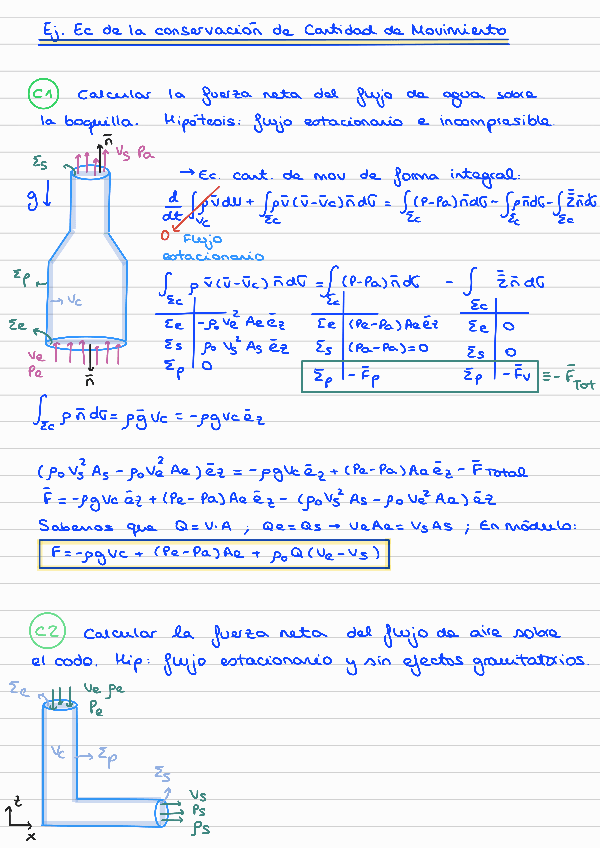 Ej. Ec de la conservación de Cantidad de Movimiento
C1 Calcular la fuerza neta del flujo de agua sobre
la boquilla. Hipótesis: flujo estacionario e incompresible
n̄
Σs
Vs Pa
g
Σp
Vc
Σe
Ve
Pe
n̄
→ Ec. cant. de mov de forma integral:
d/dt ∫Vc ρv̄dV + ∫Σc ρv̄(v̄-v̄c)n̄dσ = ∫Σc -(P-Pa)n̄dσ - ∫Σc ρn̄dσ - ∫Σc Z̿n̄dσ
0 Flujo
estacionario
∫Σc ρ v̄(v̄-v̄c) n̄dσ = ∫Σc (P-Pa) n̄dσ - ∫Σc Z̿n̄dσ
Σe | -ρ₀Ve² Ae ēz Σe | (Pe-Pa)Ae ēz Σe | 0
Σs | ρ₀ Vs² As ēz Σs | (Pa-Pa)=0 Σs | 0
Σp | 0 Σp | -F̄p Σp | -F̄v ≡ -F̄Tot
∫Σc ρ n̄dσ = ρḡVc = -ρgVc ēz
(ρ₀Vs² As - ρ₀Ve² Ae) ēz = -ρgVc ēz + (Pe-Pa)Ae ēz - F̄Total
F̄ = -ρgVc ēz + (Pe-Pa) Ae ēz - (ρ₀Vs² As - ρ₀Ve² Ae) ēz
Sabemos que Q=V·A ; Qe=Qs → VeAe=VsAs ; En módulo:
F=-ρgVc + (Pe-Pa)Ae + ρ₀Q(Ve-Vs)
C2 Calcular la fuerza neta del flujo de aire sobre
el codo. Hip: flujo estacionario y sin efectos gravitatorios.
Σe
Ve ρe
Pe
Vc
Σp
Σs
Vs
Ps
ρs
z
x